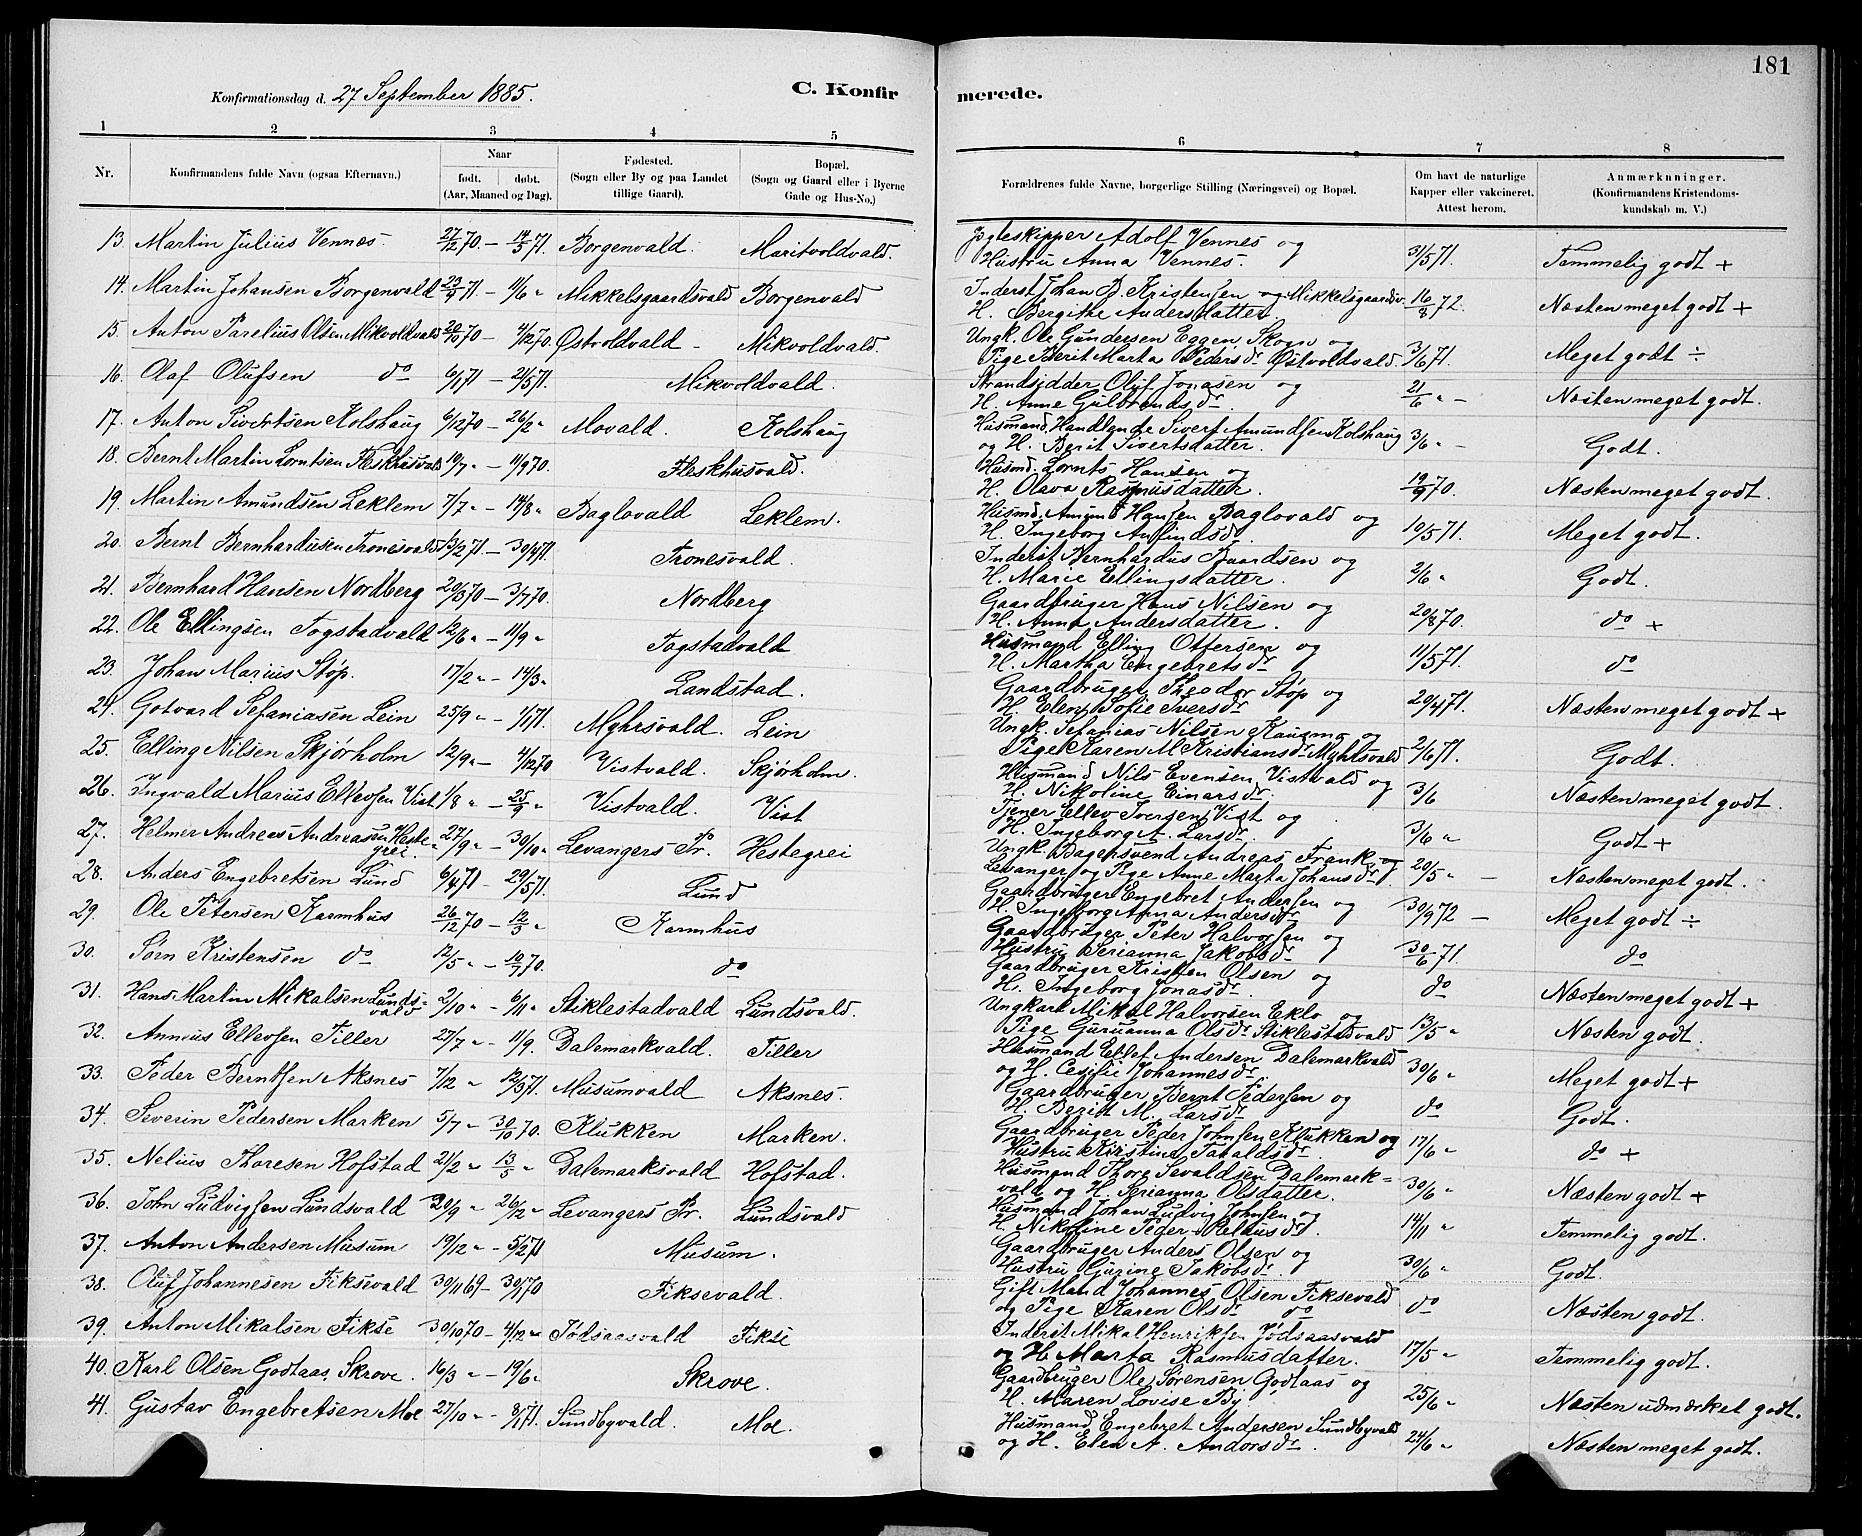 181
Konfirmationsdag d. 27 September 1885.
C. Konfirmerede.
1 2 3 4 5 6 7 8
Nr. Konfirmandens fulde Navn (ogsaa Efternavn.) Naar født. døbt. (Aar, Maaned og Dag). Fødested. (Sogn eller By og paa Landet tillige Gaard). Bopæl. (Sogn og Gaard eller i Byerne Gade og Hus-No.) Forældrenes fulde Navne, borgerlige Stilling (Næringsvei) og Bopæl. Om havt de naturlige Kapper eller vakcineret. Attest herom. Anmærkninger. (Konfirmandens Kristendomskundskab m. V.)
13. Martin Julius Vennes. 27/12 70 — 14/5 71. Borgenvald. Maritvoldvald. Jagteskipper Adolf Vennes og 31/5 71. Temmelig godt +
Hustru Anna Vennes.
14. Martin Johansen Borgenvald 23/4 71 — 11/6 " Mikkelsgaardsvald Borgenvald Inderst Johan B. Kristensen og Mikkelsgaardsv. 16/8 72. Næsten meget godt +
H. Bergithe Andersdatter.
15. Anton Parelius Olsen Mikvoldvald 20/10 70 — 4/12 70. Østvoldvald — Mikvoldvald. Ungk. Ole Gundersen Eggen, Skogn og 3/6 71. Meget godt ÷
Pige Berit Marta Pedersdr Østvoldvald.
16. Olaf Olufsen do 6/1 71 — 21/5 71. Mikvoldvald. Strandsidder Oluf Jonasen og 21/6 " — Næsten meget godt.
H. Anne Gulbrandsdr.
17. Anton Sivertsen Kolshaug 6/12 70 — 26/2 " Movald. Kolshaug Husmand Handlende Sivert Amundsen Kolshaug 3/6 " — Godt.
og H. Berit Sivertsdatter.
18. Bernt Martin Lorntsen Fleskhusvald 19/7 " — 11/9 70. Fleskhusvald. Husmd. Lornts Hansen og 19/9 70. Næsten meget godt.
H. Olava Rasmusdatter.
19. Martin Amundsen Leklem 7/7 " — 14/8 " Baglovald Leklem. Husmd. Amund Hansen Baglovald og 10/5 71. Meget godt.
H. Ingeborg Arfindsdr.
20. Bernt Bernhardusen Tronesvald 13/2 71 — 30/4 71. Tronesvald. Inderst Bernhardus Baardsen og 2/6 " Godt.
H. Marie Ellingsdatter.
21. Bernhard Hansen Nordberg 20/3 70 — 3/7 70. Nordberg Gaardbruger Hans Nilsen og 20/8 70. do +
H. Anna Andersdatter.
22. Ole Ellingsen Togstadvald 12/6 " — 11/9 " Togstadvald Husmand Elling Ottersen og 11/5 71. do
H. Martha Engebretsdr
23. Johan Marius Støp. 17/2 " — 14/3 " Landstad. Gaardbruger Theodor Støp og 20/4 71. Næsten meget godt +
H. Elen Sofie Iversdr
24. Gotvard Sefaniasen Lein 25/9 " — 1/1 71. Myhrsvald. Lein Ungk. Sefanias Nilsen Kausmo og 2/6 71. Godt.
Pige Karen M. Kristiansdr Myhrsvald
25. Elling Nilsen Skjørholm 12/9 " — 4/12 70 Vistvald. Skjørholm. Husmand Nils Evensen Vistvald og 3/6 Næsten meget godt.
H. Nikoline Einarsdr.
26. Ingvald Marius Ellevsen Vist 1/8 " — 25/9 " Vistvald. Vist Tjener Ellev Iversen Vist og 3/6 " Godt +
H. Ingeborg A. Larsdr.
27. Helmer Andreas Andreasen Hestegrei 27/9 " — 30/10 " Levangers Pr. Hestegrei Ungk. Bagersvend Andreas Frank og 20/5 " — Næsten meget godt.
Levanger og Pige Anne Marta Johansdr
28. Anders Engebretsen Lund 6/4 71 — 29/5 71. Lund Gaardbruger Engebret Andersen og 30/9 72 — Meget godt ÷
H. Ingeborg Anna Andersdr
29. Ole Petersen Karmhus 26/12 70 — 12/3 " Karmhus Gaardbruger Peter Halvorsen og 30/6 71. do
Hustru Serianna Jakobsdr
30. Sørn Kristensen do 12/5 " — 10/7 70. do Gaardbruger Kristen Olsen og do Næsten meget godt +
H. Ingeborg Jonasdr.
31. Hans Martin Mikalsen Lundsvald 2/10 " — 6/11 " Stiklestadvald Lundsvald. Ungkarl Mikal Halvorsen Eklo og 13/5 " Næsten godt.
Pige Guruanna Olsdr Stiklestadvald
32. Annæus Ellevsen Tiller 27/7 " — 11/9. Dalemarkvald. Tiller Husmand Ellef Andersen Dalemarkvald 30/6 " Meget godt +
og H. Cesilie Johannesdr
33. Peder Berntsen Aksnes 7/12 " 12/3 71. Musumvald Aksnes. Gaardbruger Bernt Pedersen og do Godt.
H. Beritt M. Larsdr
34. Severin Pedersen Marken 5/7 " — 30/10 70. Klukken Marken. Gaardbruger Peder Johnsen Klukken og 17/6 " do +
Hustru Kirstine Tavaldsdr.
35. Nelius Thoresen Hofstad 21/2 " 13/5 " Dalemarksvald Hofstad. Husmand Thore Sevaldsen Dalemark= 30/6 " Næsten godt +
vald og H. Serianna Olsdatter.
36. John Ludvigsen Lundsvald 20/9 " — 26/12 " Levangers Pr. Lundsvald Husmand Johan Ludvig Johnsen og 14/11 " Temmelig godt.
H. Nikoline Peder-Peleusdr
37. Anton Andersen Musum 19/12 " — 5/2 71 Musum. Gaardbruger Anders Olsen og 30/6 " Godt.
Hustru Gurine Jakobsdr.
38. Oluf Johannesen Fiksevald 30/11 69 — 30/1 70 Fiksevald. Gift Mand Johannes Olsen Fiksevald do Næsten godt.
og Pige Karen Olsdr do
39. Anton Mikalsen Fikse 30/10 70 — 4/12 " Jødsaasvald Fikse Inderst Mikal Henriksen Jødsaasvald 17/5 " Temmelig godt.
og H. Marta Rasmusdatter.
40. Karl Olsen Godtaas, Skrove. 16/3 " — 19/6 " Skrove. Gaardbruger Ole Sørensen Godtaas og 25/6 " Næsten udmærket godt.
H. Maren Lovise By.
41. Gustav Engebretsen Moe 27/10 " — 8/1 71. Sundbyvald. Moe. Husmand Engebret Andersen Sundbyvald 24/6 " Næsten meget godt.
og H. Elen A. Andorsdr.